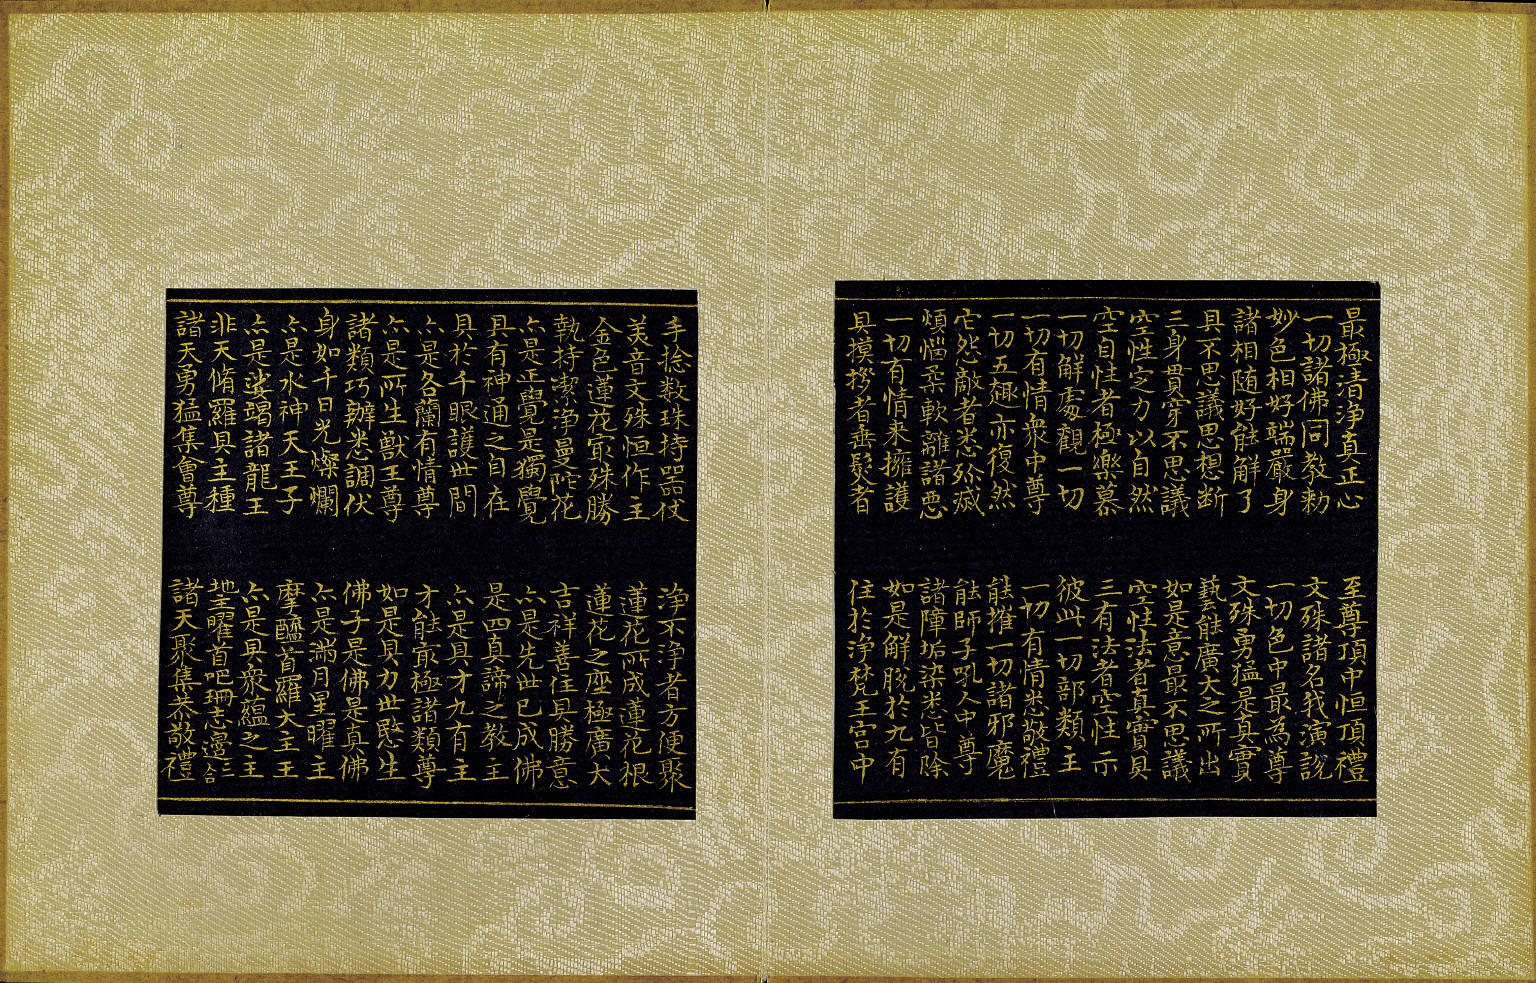 最極清淨真正心　至尊頂中恒頂禮
一切諸佛同教勑　文殊諸名我演說
妙色相好端嚴身　一切色中最為尊
諸相随好能解了　文殊勇猛是真實
具不思議思想断　藝能廣大之所出
三身貫穿不思議　如是意最不思議
空性之力以自然　空性法者真實具
空自性者極樂慕　三有法者空性示
一切解處觀一切　彼此一切部類主
一切有情衆中尊　一切有情悉敬禮
一切五趣亦復然　能摧一切諸邪魔
它怨敵者悉殄滅　能師子吼人中尊
煩惱柔軟離諸惡　諸障垢染悉皆除
一切有情来擁護　如是解脫於九有
具摸㧊者垂髮者　住於淨梵王宫中
手捻数珠持器仗　淨不淨者方便聚
美音文殊恒作主　蓮花所成蓮花根
金色蓮花㝡殊勝　蓮花之座極廣大
執持潔淨曼陀花　吉祥善住具勝意
亦是正覺是獨覺　亦是先世已成佛
具有神通之自在　是四真諦之教主
具於千眼護世間　亦是具才九有主
亦是各蘭有情尊　才能㝡極諸類尊
亦是所生獸王尊　如是具力世慜生
諸類巧辦悉調伏　佛子是佛是真佛
身如千日光燦爛　亦是满月星曜主
亦是水神天王子　摩醯首羅大主王
亦是娑竭諸龍王　亦是具衆蘊之主
非天脩羅具主種　地曜首吧珊志邊二合
諸天勇猛集會尊　諸天聚集恭敬禮